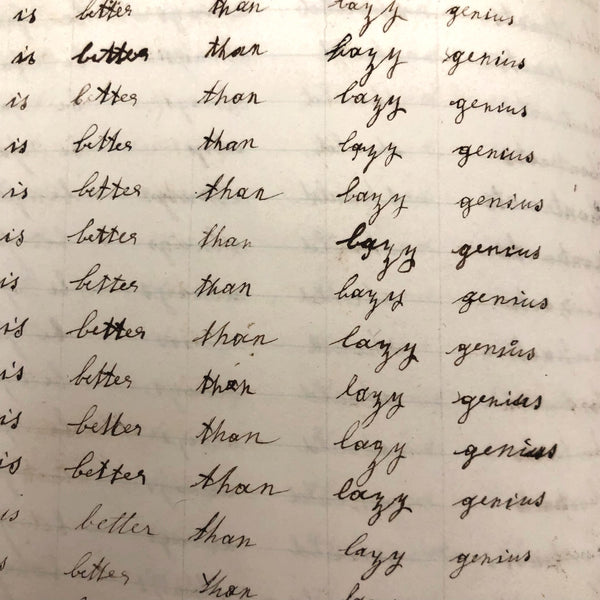 is better than lazy genius
is better than lazy genius
is better than lazy genius
is better than lazy genius
is better than lazy genius
is better than lazy genius
is better than lazy genius
is better than lazy genius
is better than lazy genius
is better than lazy genius
is better than lazy genius
is better than lazy genius
better than